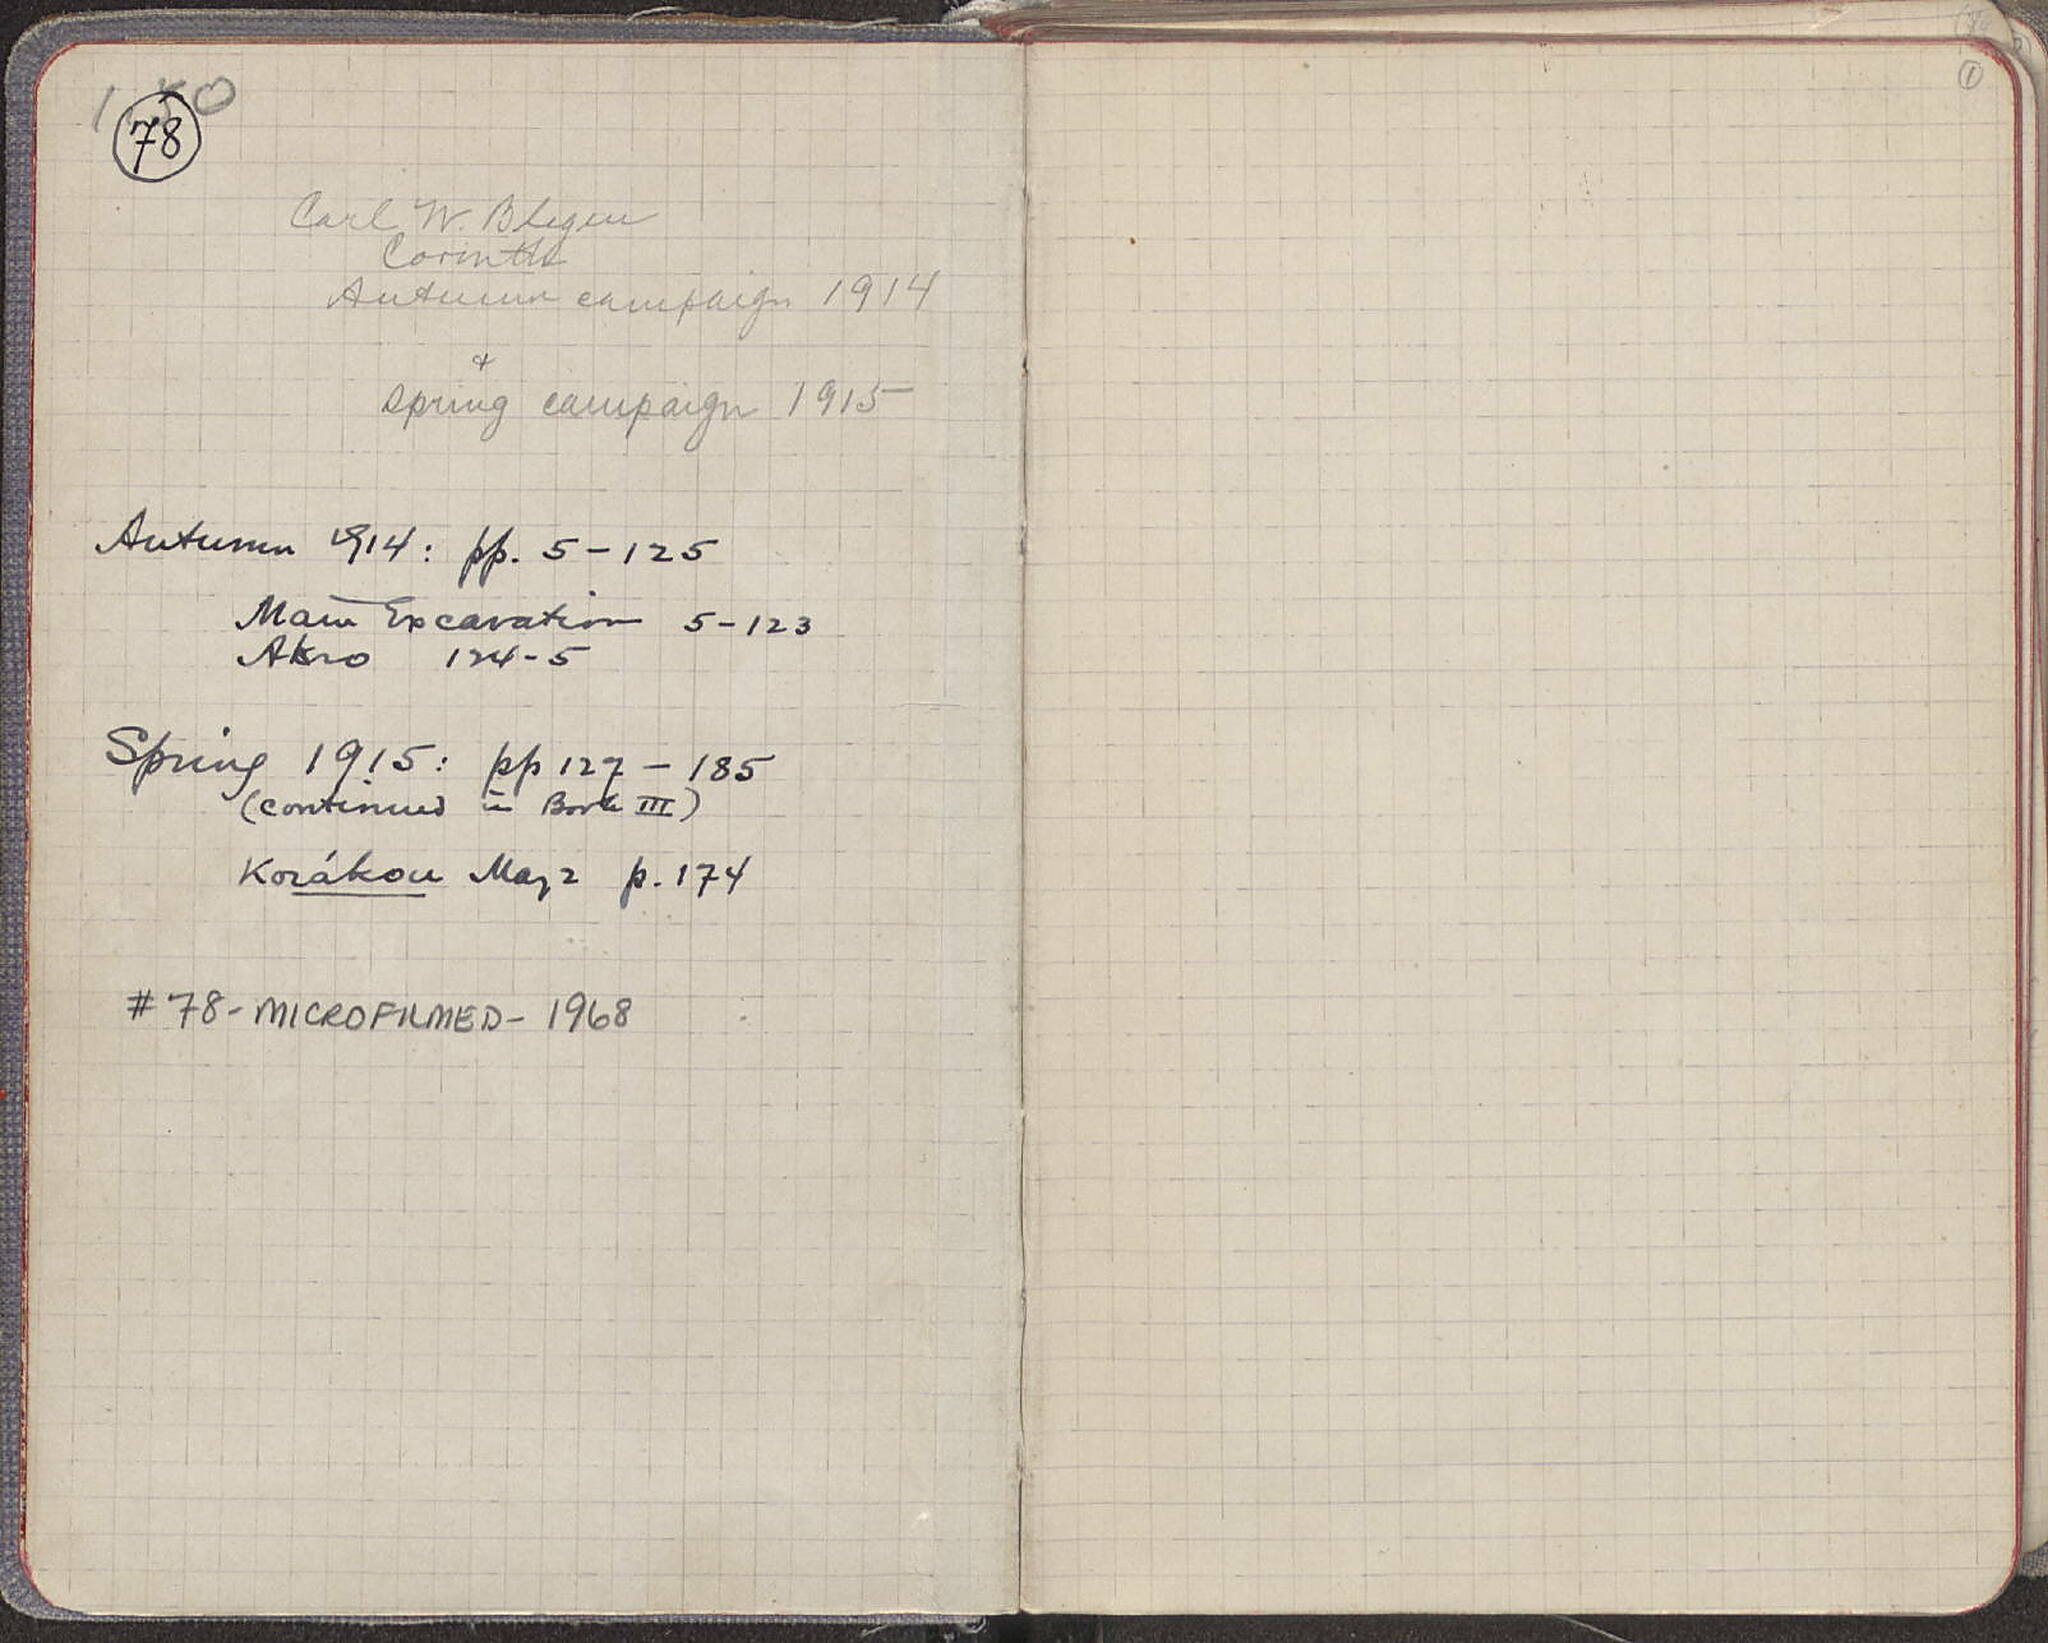 78
Carl W. Blegen
Corinth
Autumn campaign 1914
&
spring campaign 1915
Autumn 1914: pp. 5-125
Main Excavation 5-123
Akro 124-5
Spring 1915: pp 127 - 185
(continued in Book III)
Korákou May 2 p. 174
# 78 - MICROFILMED - 1968
1